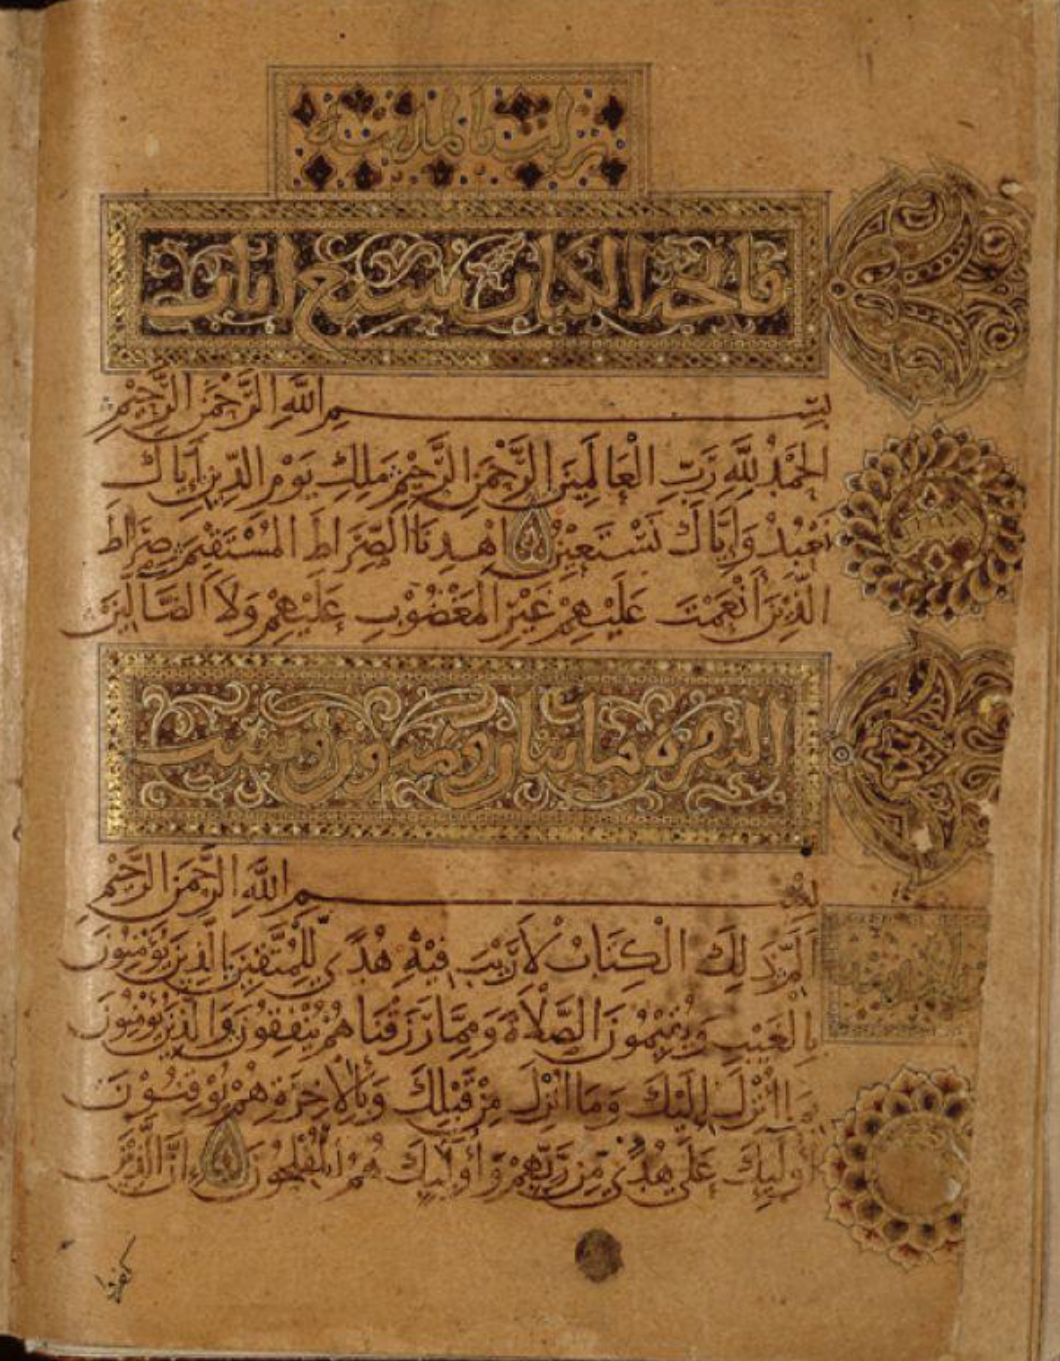 نزلت بالمدينة
فاتحة الكتاب سبع ايات
بِسْمِ اللَّهِ الرَّحْمَنِ الرَّحِيْمِ
الْحَمْدُ لِلَّهِ رَبِّ الْعَالَمِيْنَ الرَّحْمَنِ الرَّحِيْمِ مَلِكِ يَوْمِ الدِّينِ إِيَّاكَ
نَعْبُدُ وَإِيَّاكَ نَسْتَعِيْنُ اهْدِنَا الصِّرَاطَ الْمُسْتَقِيْمَ صِرَاطَ
الَّذِيْنَ أَنْعَمْتَ عَلَيْهِمْ غَيْرِ الْمَغْضُوبِ عَلَيْهِمْ وَلَا الضَّالِّيْنَ
البقرة مائتان وثمنون وست
بِسْمِ اللَّهِ الرَّحْمَنِ الرَّحِيْمِ
الَمّ ذَلِكَ الْكِتَابُ لَا رَيْبَ فِيْهِ هُدًى لِلْمُتَّقِيْنَ الَّذِيْنَ يُؤْمِنُوْنَ
بِالْغَيْبِ وَيُقِيْمُونَ الصَّلَاةَ وَمِمَّا رَزَقْنَاهُمْ يُنْفِقُوْنَ وَالَّذِيْنَ يُؤْمِنُوْنَ
بِمَا أُنْزِلَ إِلَيْكَ وَمَا أُنْزِلَ مِنْ قَبْلِكَ وَبِالْآخِرَةِ هُمْ يُوْقِنُوْنَ
أُولَئِكَ عَلَى هُدًى مِنْ رَبِّهِمْ وَأُولَئِكَ هُمُ الْمُفْلِحُوْنَ إِنَّ الَّذِيْنَ
كفروا